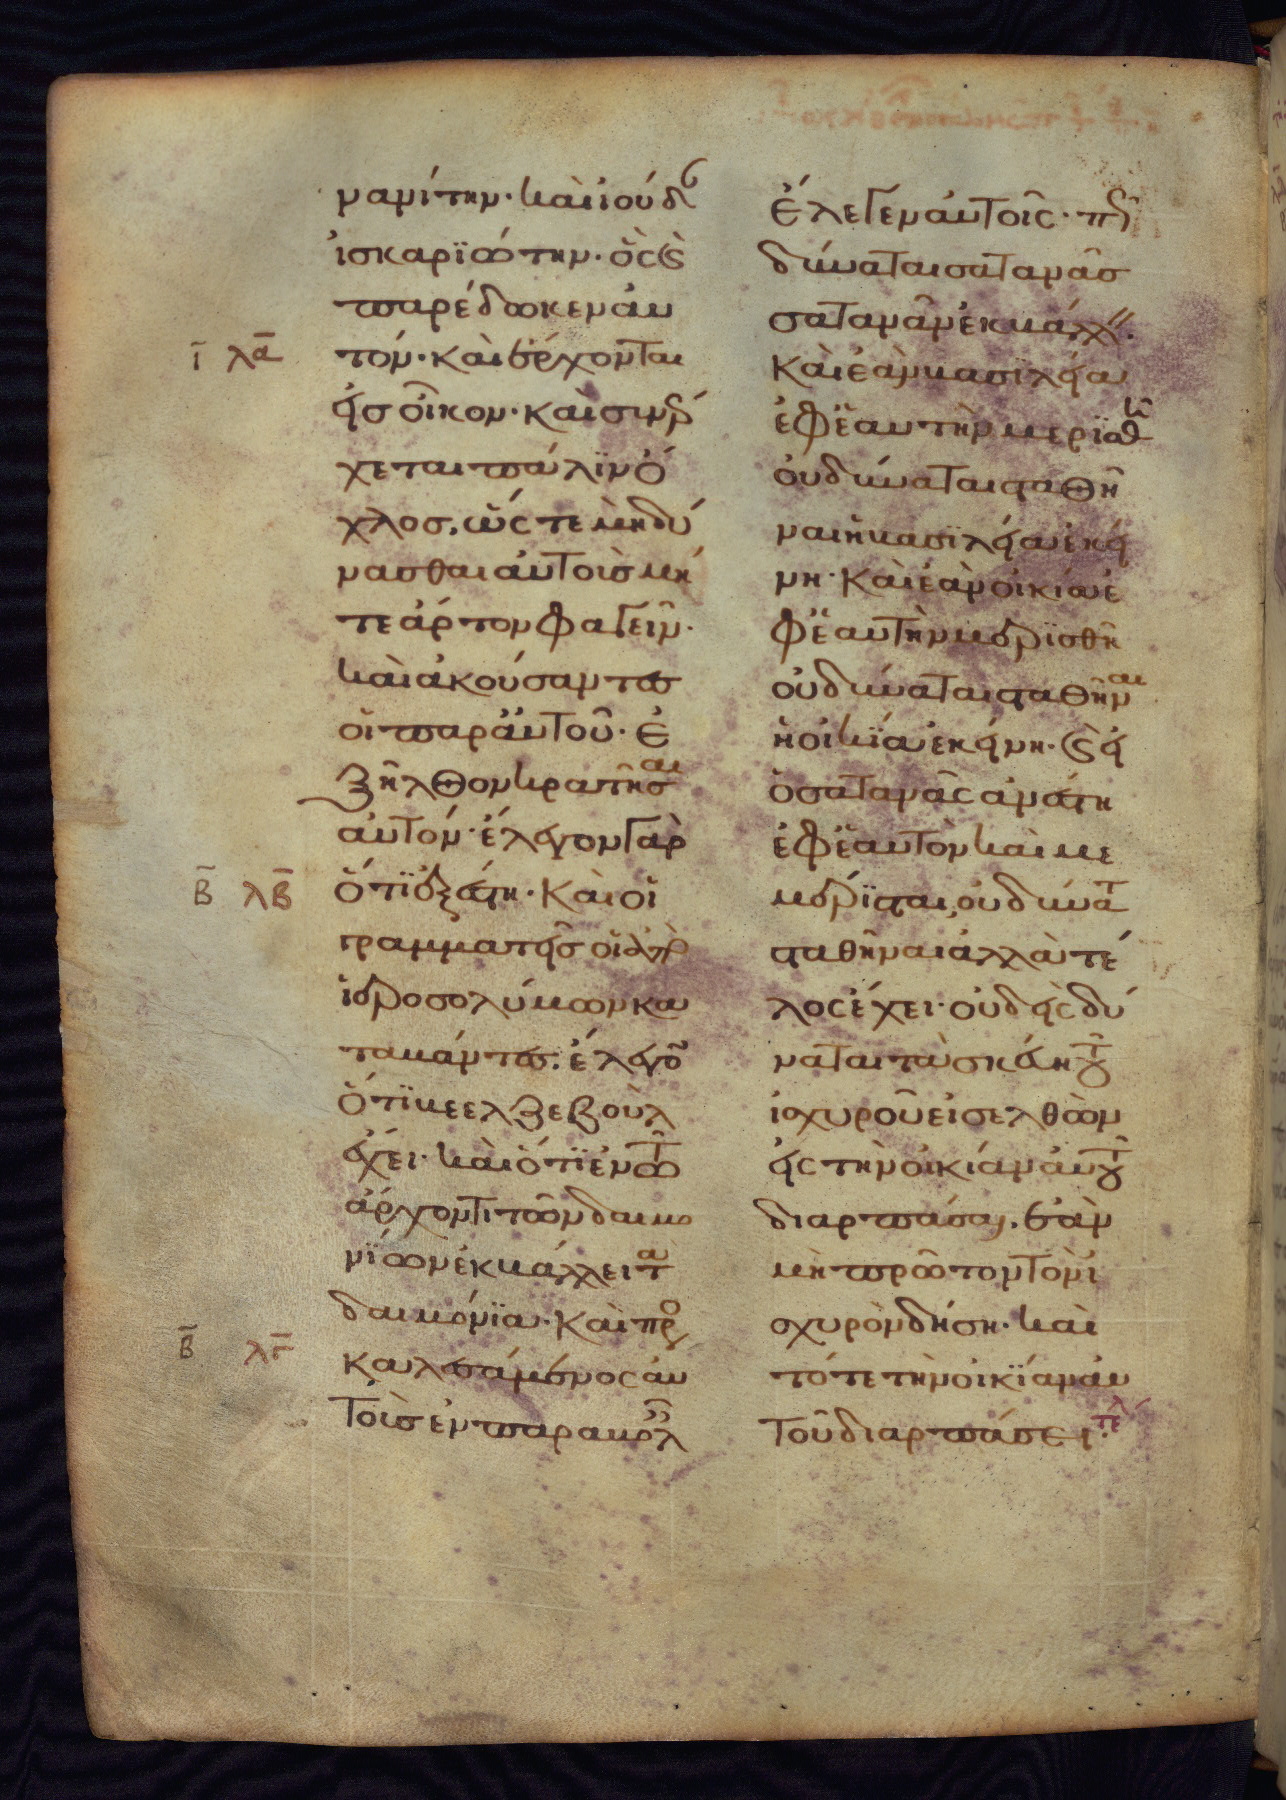 νανίτην· καὶ ἰούδ
ἰσκαρϊώτην· ὃς ϗ
παρέδωκεν αυ
ῑ λᾱ τόν· καὶ ἔρχονται
εἰς οἶκον· καὶ συνέρ
χεται πάλϊν ὄ
χλος. ὥς τε μὴ δύ
νασθαι αὐτοὺς μή
τε ἄρτον φαγεῖν·
καὶ ἀκούσαντες
οἱ παρ αὐτοῦ· ἐ
ξῆλθον κρατῆσαι
αὐτόν· ἔλεγον γὰρ
β̄ λβ̄ ὅτϊ ἐξέστη· Καὶ οἱ
γραμματεῖς οἱ ἀπὸ
ἱεροσολύμων κα
ταβάντες. ἔλεγον
ὅτϊ βεελζεβοὺλ
ἔχει· καὶ ὅτϊ ἐν τῶ
ἄρχοντι τῶν δαιμο
νϊων ἐκβάλλει τὰ
δαιμόνϊα· Καὶ προσ
β̄ λγ̄ καλεσάμενος αυ
τοὺς ἐν παραβολ
ἔλεγεν αὐτοῖς· πῶς
δύναται σατανᾶς
σατανᾶν ἐκβάλλ.
Καὶ ἐὰν βασϊλεία
ἐφ ἑαυτὴν μερϊσθῆ
οὐ δύναται σταθῆ
ναι ἡ βασϊλεία ἐκεί
νη· Καὶ ἐὰν οἰκία ἐ
φ ἑαυτὴν μερϊσθῆ
οὐ δύναται σταθῆναι
ἡ οἰκϊα ἐκείνη· ϗ εἰ
ὁ σατανᾶς ἀνέστη
ἐφ ἑαυτὸν καὶ με
μέρϊσται, οὐ δύνατ
σταθῆναι ἀλλὰ τέ
λος ἔχει· οὐδεὶς δύ
ναται τὰ σκεύη τοῦ
ἰσχυροῦ εἰσελθὼν
εἰς τὴν οἰκίαν αὐτοῦ
διαρπάσαι. ἐὰν
μὴ πρῶτον τὸν ἰ
σχυρὸν δήση· καὶ
τότε τὴν οἰκϊαν αυ
τοῦ διαρπάσει· τέλ